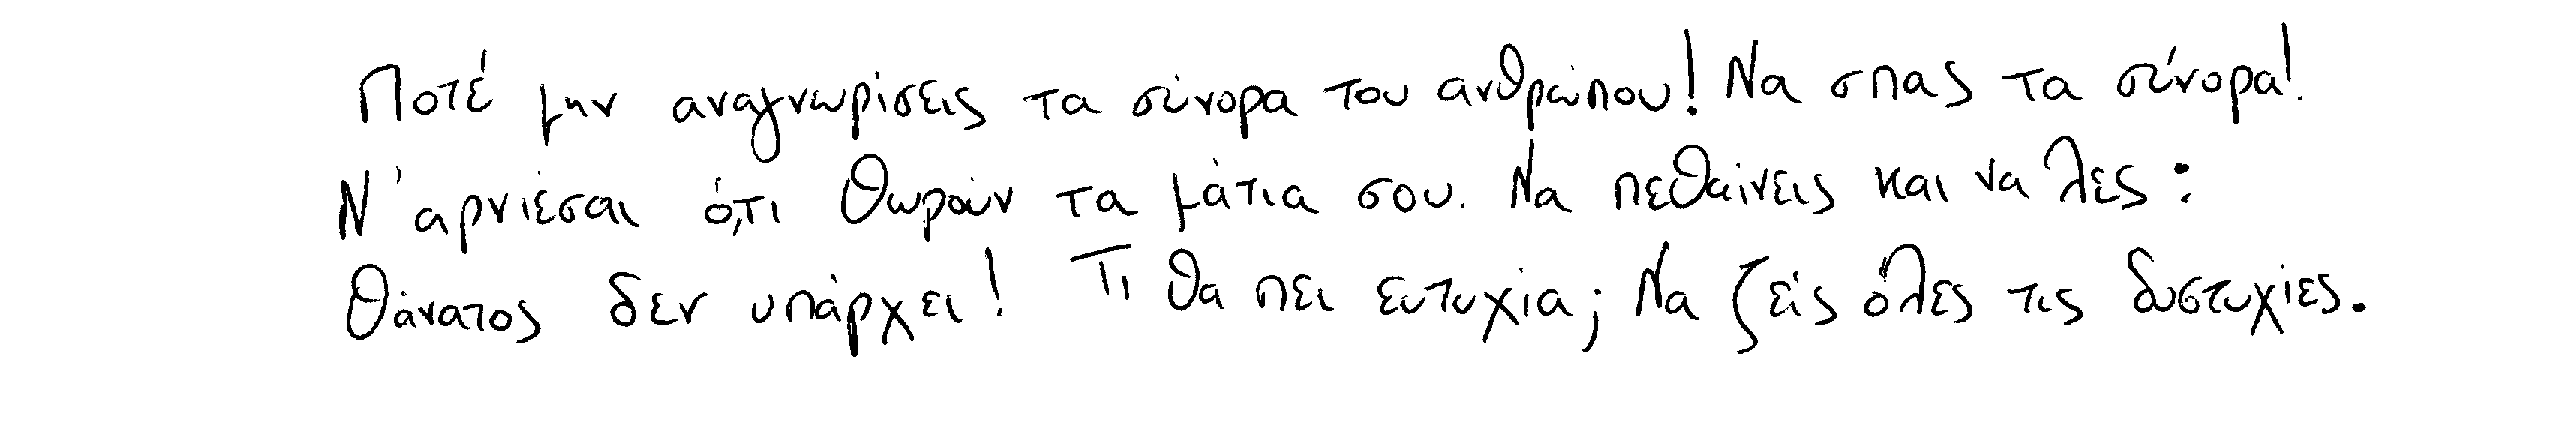 Ποτέ μην αναγνωρίσεις τα σύνορα του ανθρώπου! Να σπας τα σύνορα!
Ν' αρνιέσαι ό,τι θωρούν τα μάτια σου. Να πεθαίνεις και να λες:
Θάνατος δεν υπάρχει! Τι θα πει ευτυχία; Να ζείς όλες τις δυστυχίες.